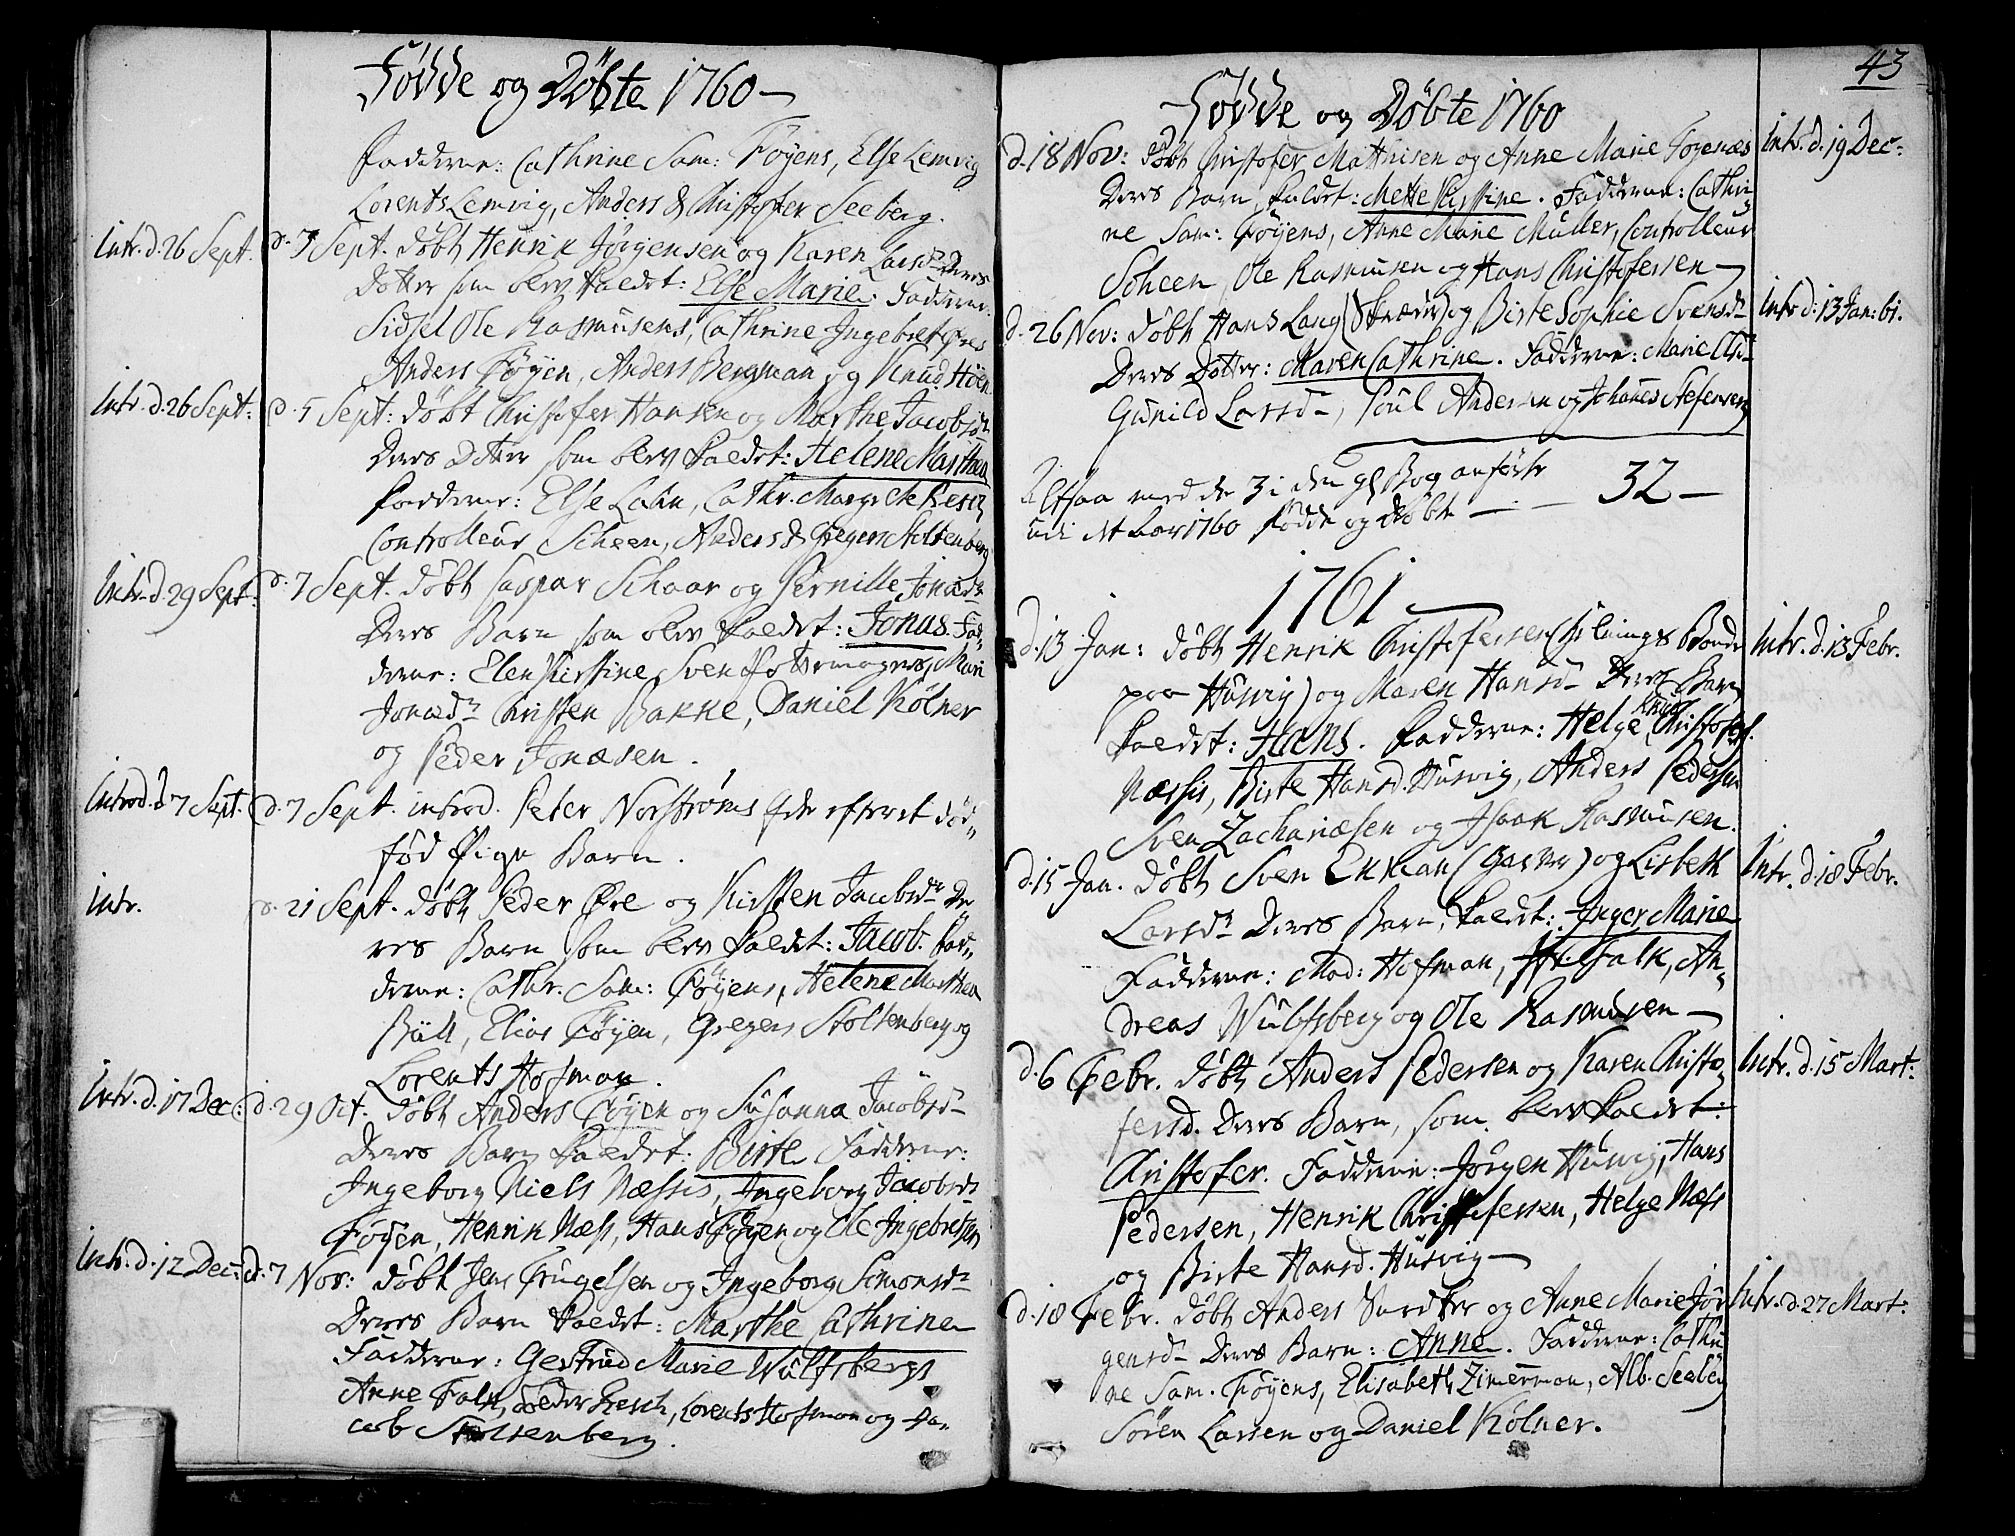 Fødde og Døbte 1760
Fadderne: Cathrine Sam: Føyens, Else Lemvig
Lorents Lemvig, Anders & Christofer Seeberg.
Intr. d. 26 Sept. d. 7 Sept. døbt Henrik Jørgensen og Karen Larsd. Deres
Dotter som blev kaldet: Else Marie. Fadderne:
Sidsel Ole Rasmusens, Cathrine Ingebret
Anders Føyen, Anders Bergman og Knud Høen
Intr. d. 26 Sept: d. 5 Sept: døbt Christofer Hansen og Marthe Jacobsdr
Deres Dotter som blev kaldet: Helene Marthea
Fadderne: Else Lahn, Cathr. Margrete Resch
Controlleur Scheen, Anders & Gregers Stoltenberg
Intr. d. 29 Sept: d. 7 Sept. døbt Caspar Schaar og Pernille Jonædr
Deres Barn som blev kaldet: Jonas. Fad-
derne: Elen Kirstine Sven Pottemagers, Mari
Jonædr Christen Bakke, Daniel Kölner
og Peder Jonæsen.
Introd. d 7 Sept. d. 7 Sept. introd. Peter Norstrøms efter et død-
fød Pige Barn.
Intr. d. 21 Sept. døbt Peder Øre og Kirsten Jacobsdr De
res Barn som blev kaldet: Jacob. Fad-
derne: Cathr. Sam: Føyens, Helene Marthea
Büll, Elias Føyen, Gregers Stoltenberg og
Lorents Hofman.
Intr. d. 17 Dec: d. 29 Oct: døbt Anders Føyen og Susanna Jacobsd
Deres Barn kaldet: Birte Fadderne:
Ingeborg Niels Næssis, Ingeborg Jacobsd
Føyen, Henrik Næss, Hans Føyen og Ole Ingebretsen
Intr. d. 12 Dec: d. 7 Nov: døbt Jens Trugelsen og Ingeborg Simonsdr
Deres Barn kaldet: Marthe Cathrine
Fadderne: Gertrud Marie Wulfsbergs
Anne Falk, Peder Resch, Lorents Hofman og Ja-
cob Stoltenberg.
43
Fødde og Døbte 1760
d. 18 Nov: døbt Christofer Mathisen og Anne Marie Togenæs Intr. d. 19 Dec:
Deres Barn kaldet: Mette Kirstine. Fadderne: Cathri
ne Sam: Føyens, Anne Marie Müller, Controlleur
Scheen, Ole Rasmusen og Hans Christofersen
d. 26 Nov: døbt Hans Lang (Skræder) og Birte Sophie Svensdr Intr d: 13 Jan: 61.
Deres Dotter: Maren Cathrine. Fadderne: Marie
Gunild Larsd, Poul Andersen og Johanes Stefensen
Altsaa med de 3 i den gl. Bog anførte
udi det Aar 1760 fødde og døbte 32
1761
d. 13 Jan: døbt Henrik Christofersen ( Bonde Intr. d. 13 Febr.
paa Husvig) og Maren Hansd Deres Barn
kaldet: Hans. Fadderne: Helge Knud Christofers.
Næssis, Birte Hansd. Husvig, Anders Pedersen
Sven Zachariæsen og Isaak Rasmusen.
d. 15 Jan. døbt Sven Ekman (Garver) og Lisbeth Intr. d. 18 Febr.
Larsdr Deres Barn, kaldet: Inger Marie
Fadderne: Mad: Hofman, Jfr. Falk, An-
dreas Wulfsberg og Ole Rasmusen
d. 6 Febr. døbt Anders Pedersen og Karen Christo Intr. d. 15 Mart:
fersd. Deres Barn, som blev kaldet:
Christofer. Fadderne: Jörgen Husvig, Hans
Pedersen, Henrik Christofersen, Helge Næss
og Birte Hansd. Husvig
d. 18 Febr. døbt Anders og Anne Marie Jør Intr. d. 27 Mart:
gensd Deres Barn: Anne. Fadderne: Cathri
ne Sam. Føyens, Elisabeth Zimerman, Alb. Seeberg
Søren Larsen og Daniel Kölner.